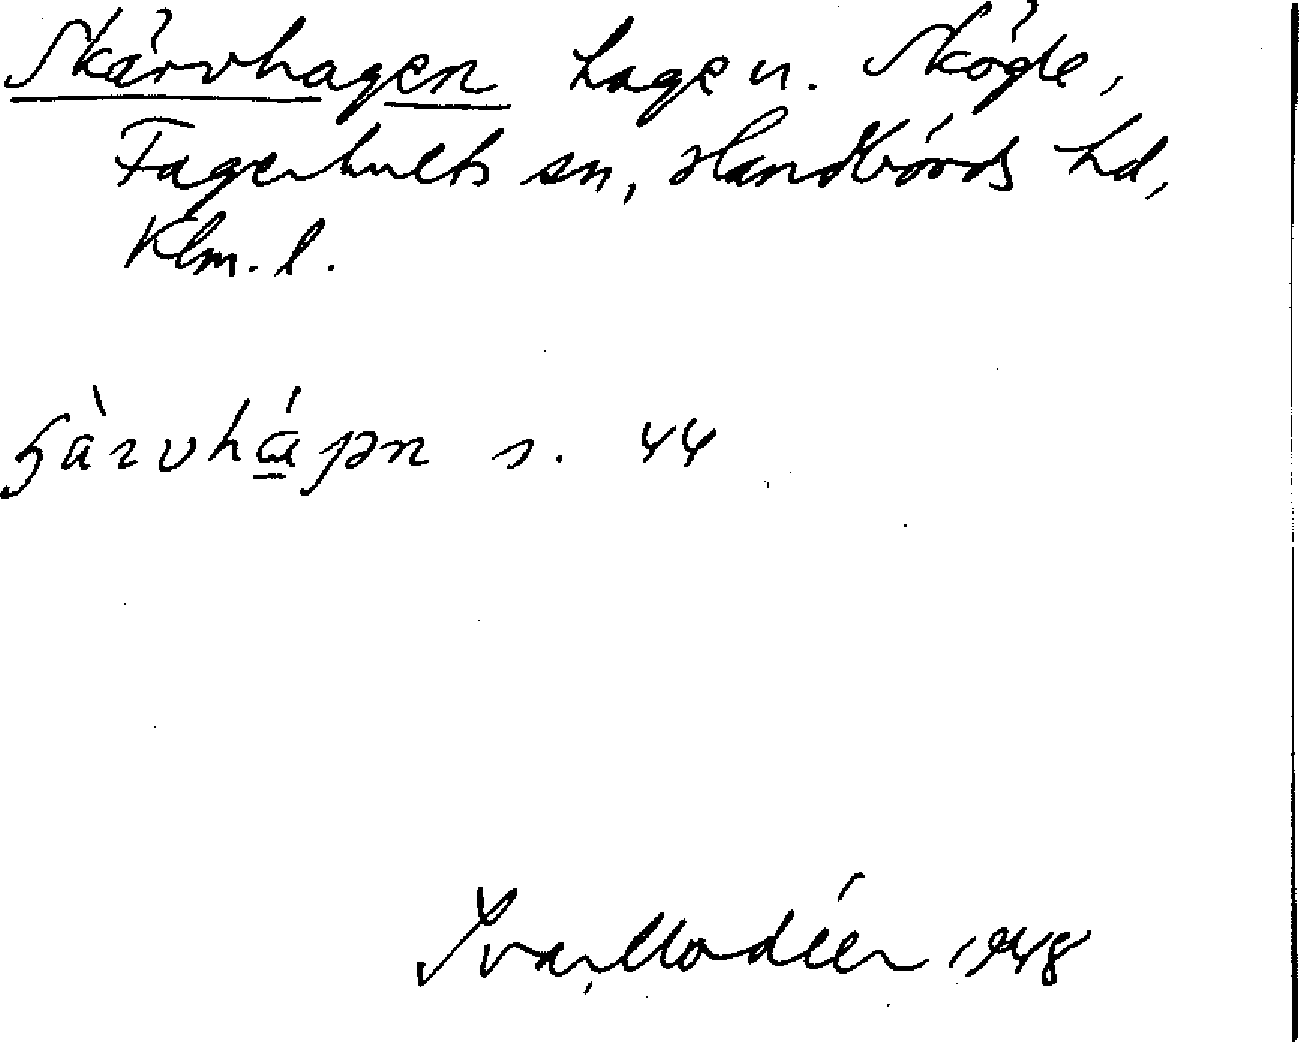 Skärvhagen hage n. Skögle,
Fagerhults sn, Handbörds hd,
Klm. l.
s. 44
Ivar Modéer 1948